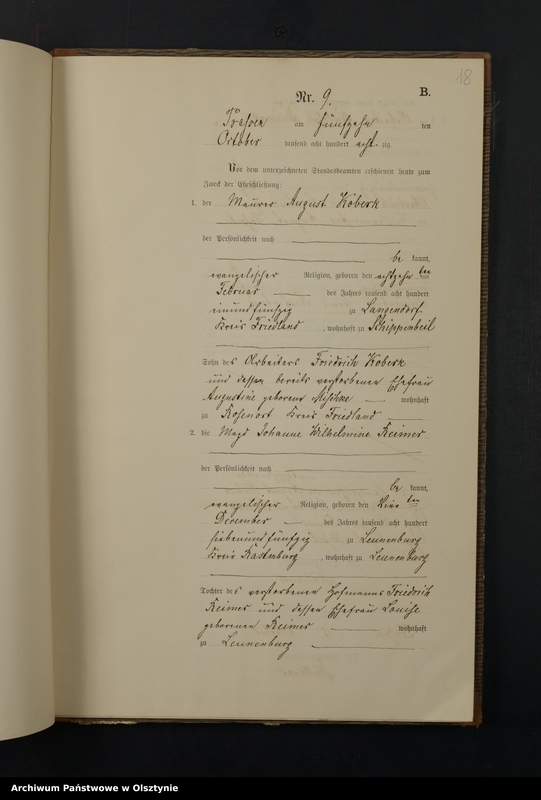 18
B.
Nr. 9.
am fünfzehn ten
October tausend acht hundert acht zig
Vor dem unterzeichneten Standesbeamten erschienen heute zum
Zweck der Eheschließung:
1. der Maurer August Koberk
der Persönlichkeit nach
be kannt,
evangelischer Religion, geboren den achtzehn ten
Februar des Jahres tausend acht hundert
einundfünfzig zu Langendorf
Kreis Friedland, wohnhaft zu Schippenbeil
Sohn des Arbeiters Friedrich Koberk
und dessen bereits verstorbenen Ehefrau
Augustine geborene wohnhaft
zu Rosenort Kreis Friedland
2. die Magd Johanne Wilhelmine Reimer
der Persönlichkeit nach
be kannt,
evangelischer Religion, geboren den vier ten
December des Jahres tausend acht hundert
siebenundfünfzig zu Leunenburg
Kreis Rastenburg, wohnhaft zu Leunenburg
Tochter des verstorbenen Hofmanns Friedrich
Reimer und dessen Ehefrau Louise
geborenen Reimer wohnhaft
zu Leunenburg
Archiwum Państwowe w Olsztynie